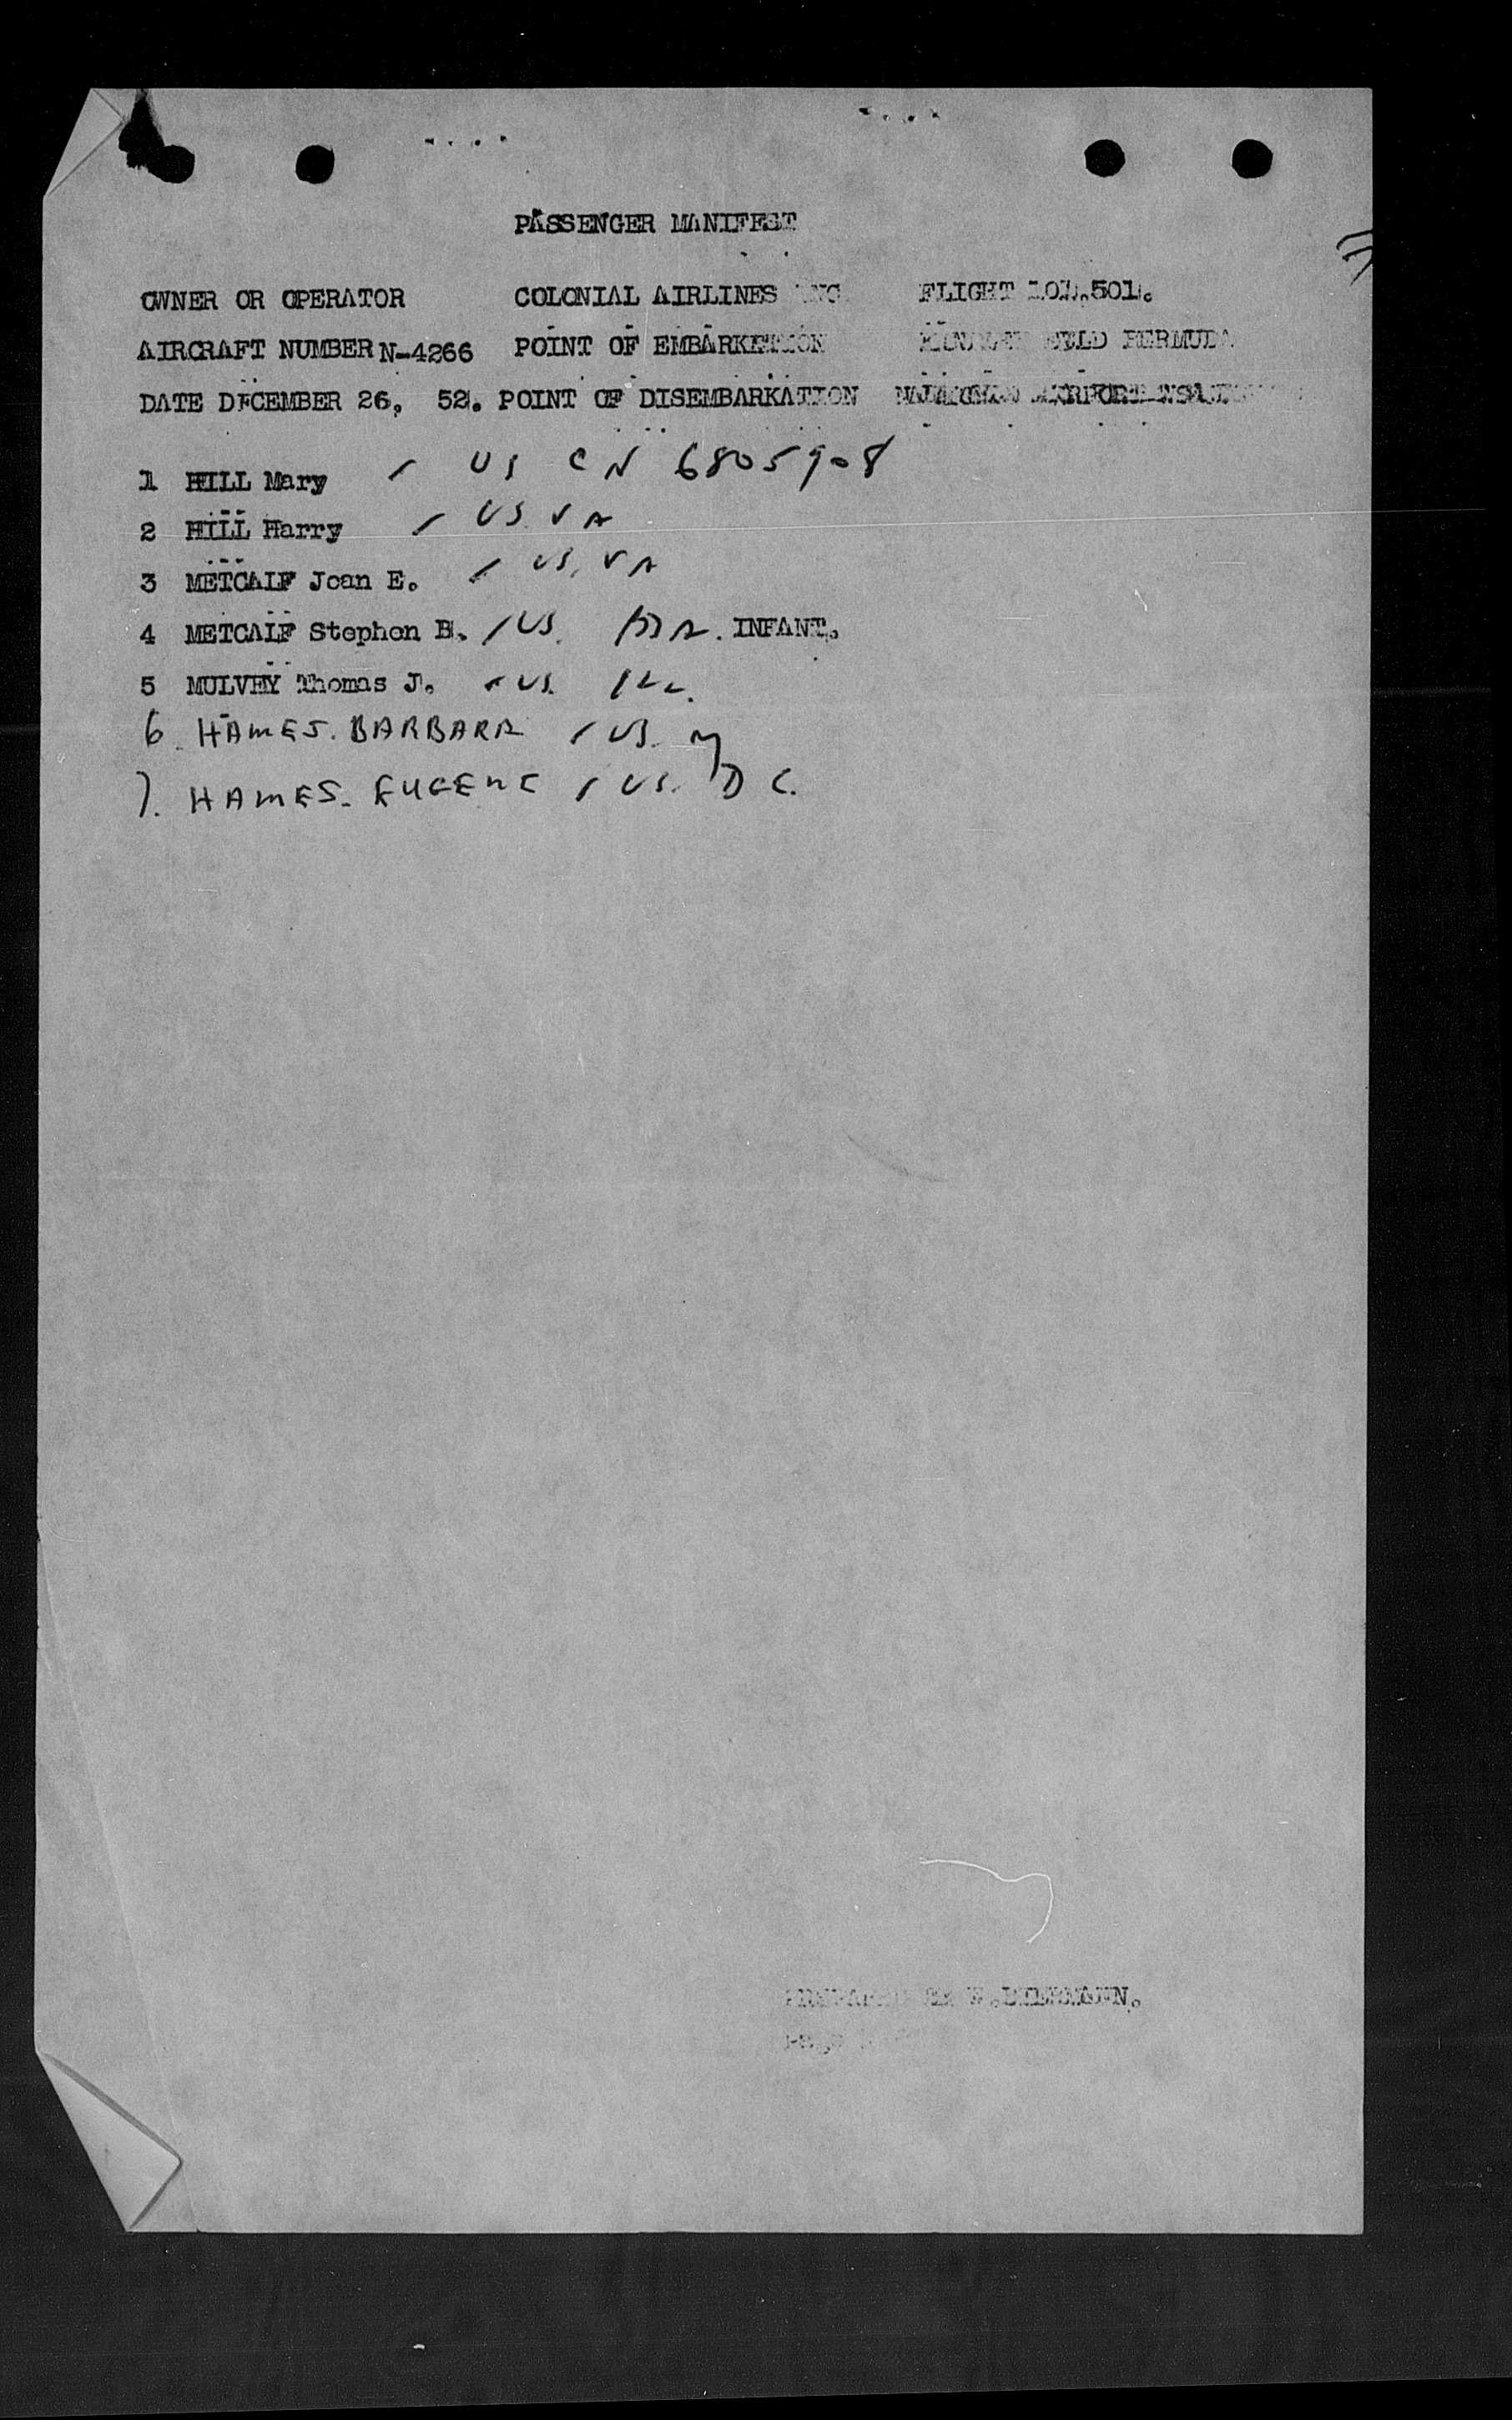 PASSENGER MANIFEST
OWNER OR OPERATOR COLONIAL AIRLINES INC. FLIGHT 501.
AIRCRAFT NUMBER N-4266 POINT OF EMBARKETION FIELD BERMUDA
DATE DECEMBER 26, 52. POINT OF DISEMBARKATION NATIONAL AIRPORT
1 HILL Mary / US CN 6805908
2 HILL Harry / US VA
3 METCALF Joan E. / US. VA
4 METCALF Stephen B. / US. INFANT.
5 MULVEY Thomas J. / US. ILL.
6. HAMES. BARBARA / US. NY
7. HAMES. EUGENE / US. D C.
PREPARED BY W.
Page